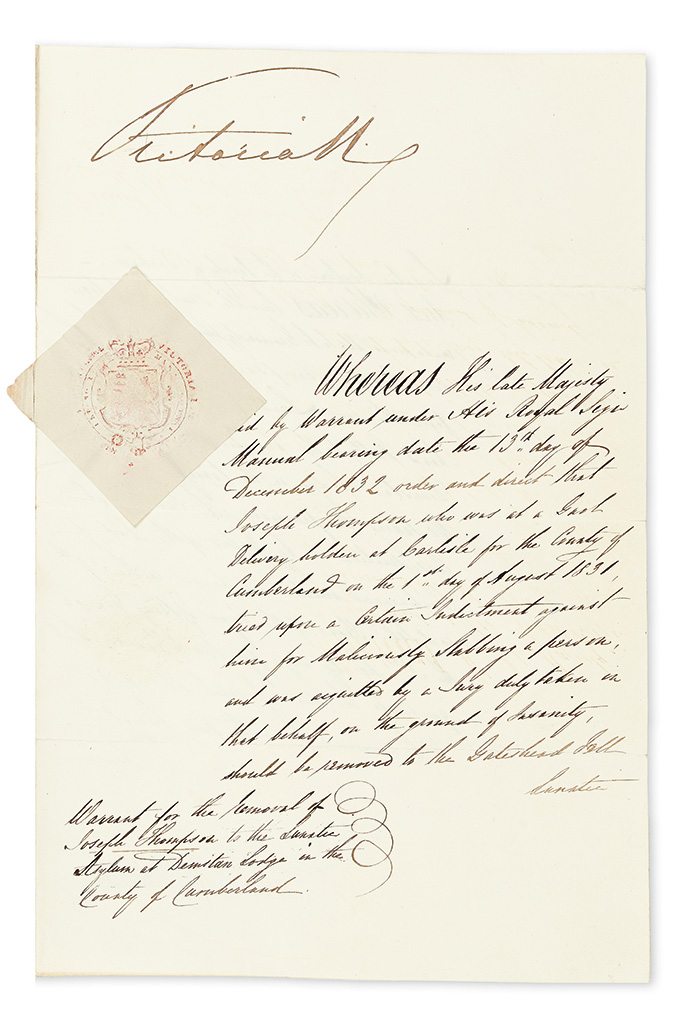 Victoria R.
VICTORIA
Whereas His late Majesty
id by Warrant under His Royal Sign
Manual bearing date the 13th day of
December 1832 order and direct that
Joseph Thompson who was at a Gaol
Delivery holden at Carlisle for the County of
Cumberland on the 1st day of August 1831,
tried upon a Certain Indictment against
him for Maliciously Stabbing a person,
and was acquitted by a Jury duly taken in
that behalf, on the ground of Insanity,
should be removed to the Gateshead Fell
Lunatic
Warrant for the removal of
Joseph Thompson to the Lunatic
Asylum at Lodge in the
County of Cumberland.